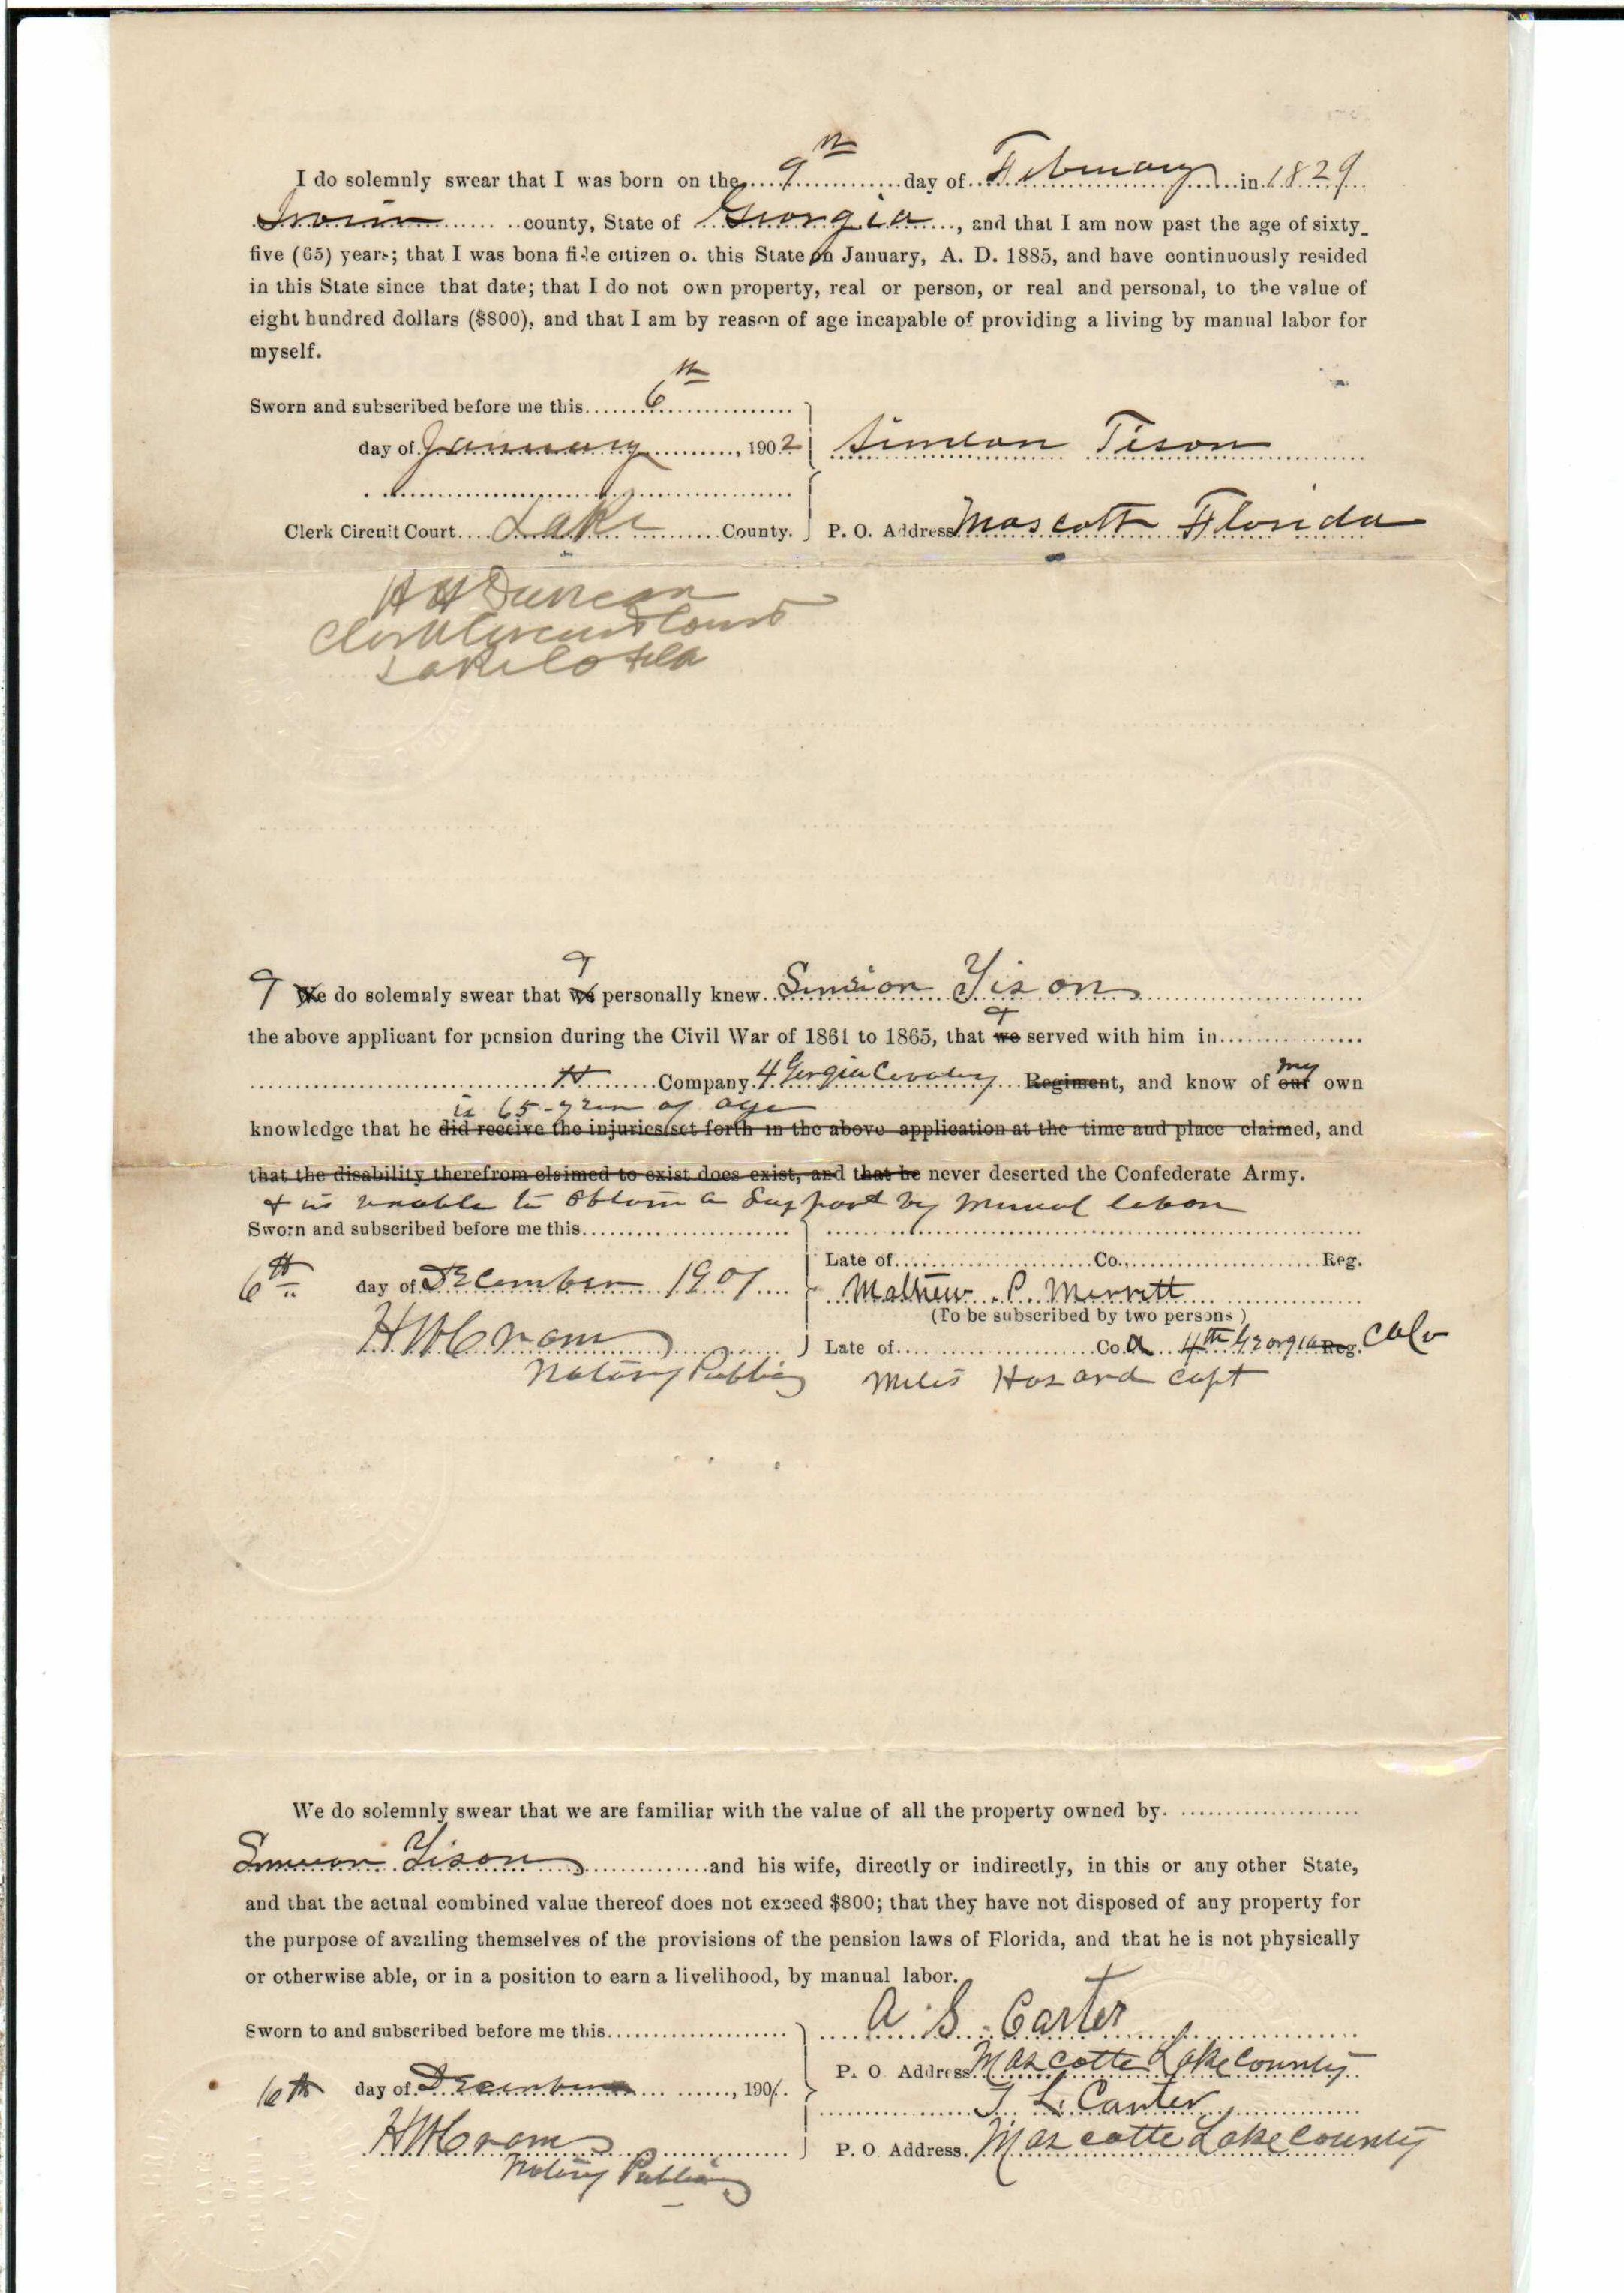 I do solemnly swear that I was born on the 9th day of February in 1829
county, State of Georgia, and that I am now past the age of sixty-
five (65) years; that I was bona fide citizen of this State in January, A. D. 1885, and have continuously resided
in this State since that date; that I do not own property, real or person, or real and personal, to the value of
eight hundred dollars ($800), and that I am by reason of age incapable of providing a living by manual labor for
myself.
Sworn and subscribed before me this 6th
day of January, 1902 Simeon Tison
Clerk Circuit Court Lake County. P. O. Address Mascott Florida
H H Duncan
Clerk Circuit Court
Lake Co Fla
I
I We do solemnly swear that we personally knew Simeion Tison
I
the above applicant for pension during the Civil War of 1861 to 1865, that we served with him in
my
Company 4 Gergia Cevalry Regiment, and know of our own
is 65 - years of age
knowledge that he did receive the injuries set forth in the above application at the time and place claimed, and
that the disability therefrom claimed to exist does exist, and that he never deserted the Confederate Army.
& is unable to obtain a support by manual labor
Sworn and subscribed before me this
Late of Co., Reg.
6th day of December 1901 Mathew P. Merritt
(To be subscribed by two persons)
H W Cram Late of Co. A 4th Georgia Reg. Calv
Notary Public Miles Hazard Capt
We do solemnly swear that we are familiar with the value of all the property owned by
Simeon Tison and his wife, directly or indirectly, in this or any other State,
and that the actual combined value thereof does not exceed $800; that they have not disposed of any property for
the purpose of availing themselves of the provisions of the pension laws of Florida, and that he is not physically
or otherwise able, or in a position to earn a livelihood, by manual labor.
A. S. Carter
Sworn to and subscribed before me this
P. O. Address Mascotte Lake County
6th day of December, 1901.
T. L. Carter
H W Cram P. O. Address. Mascotte Lake County
Notary Public